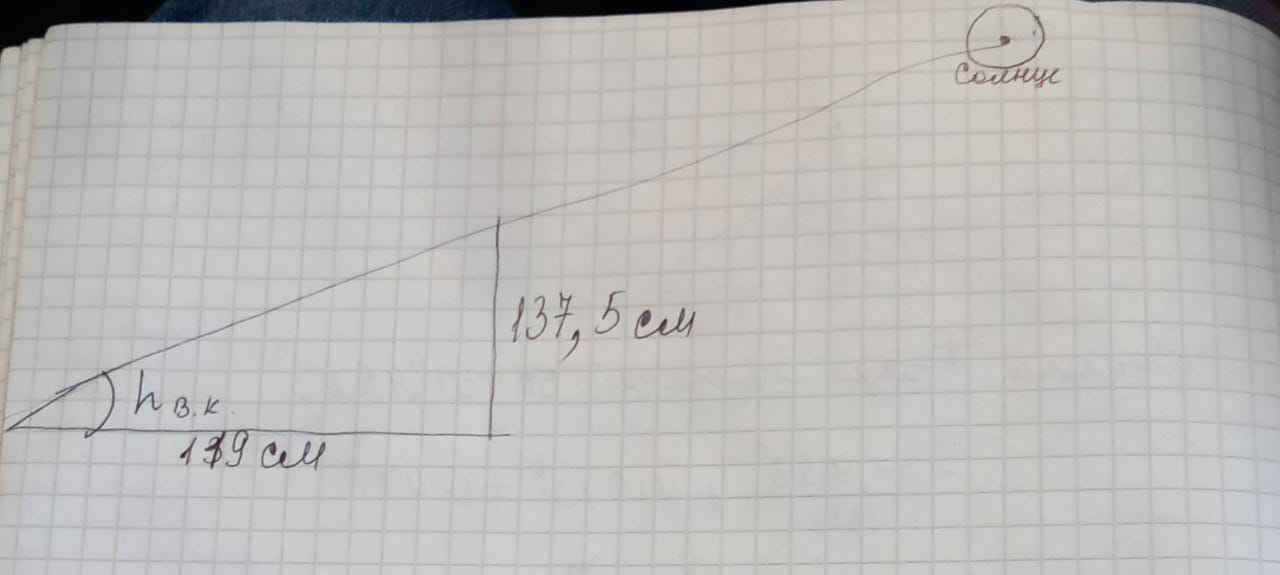 Солнце
137,5 см
h в.к.
см